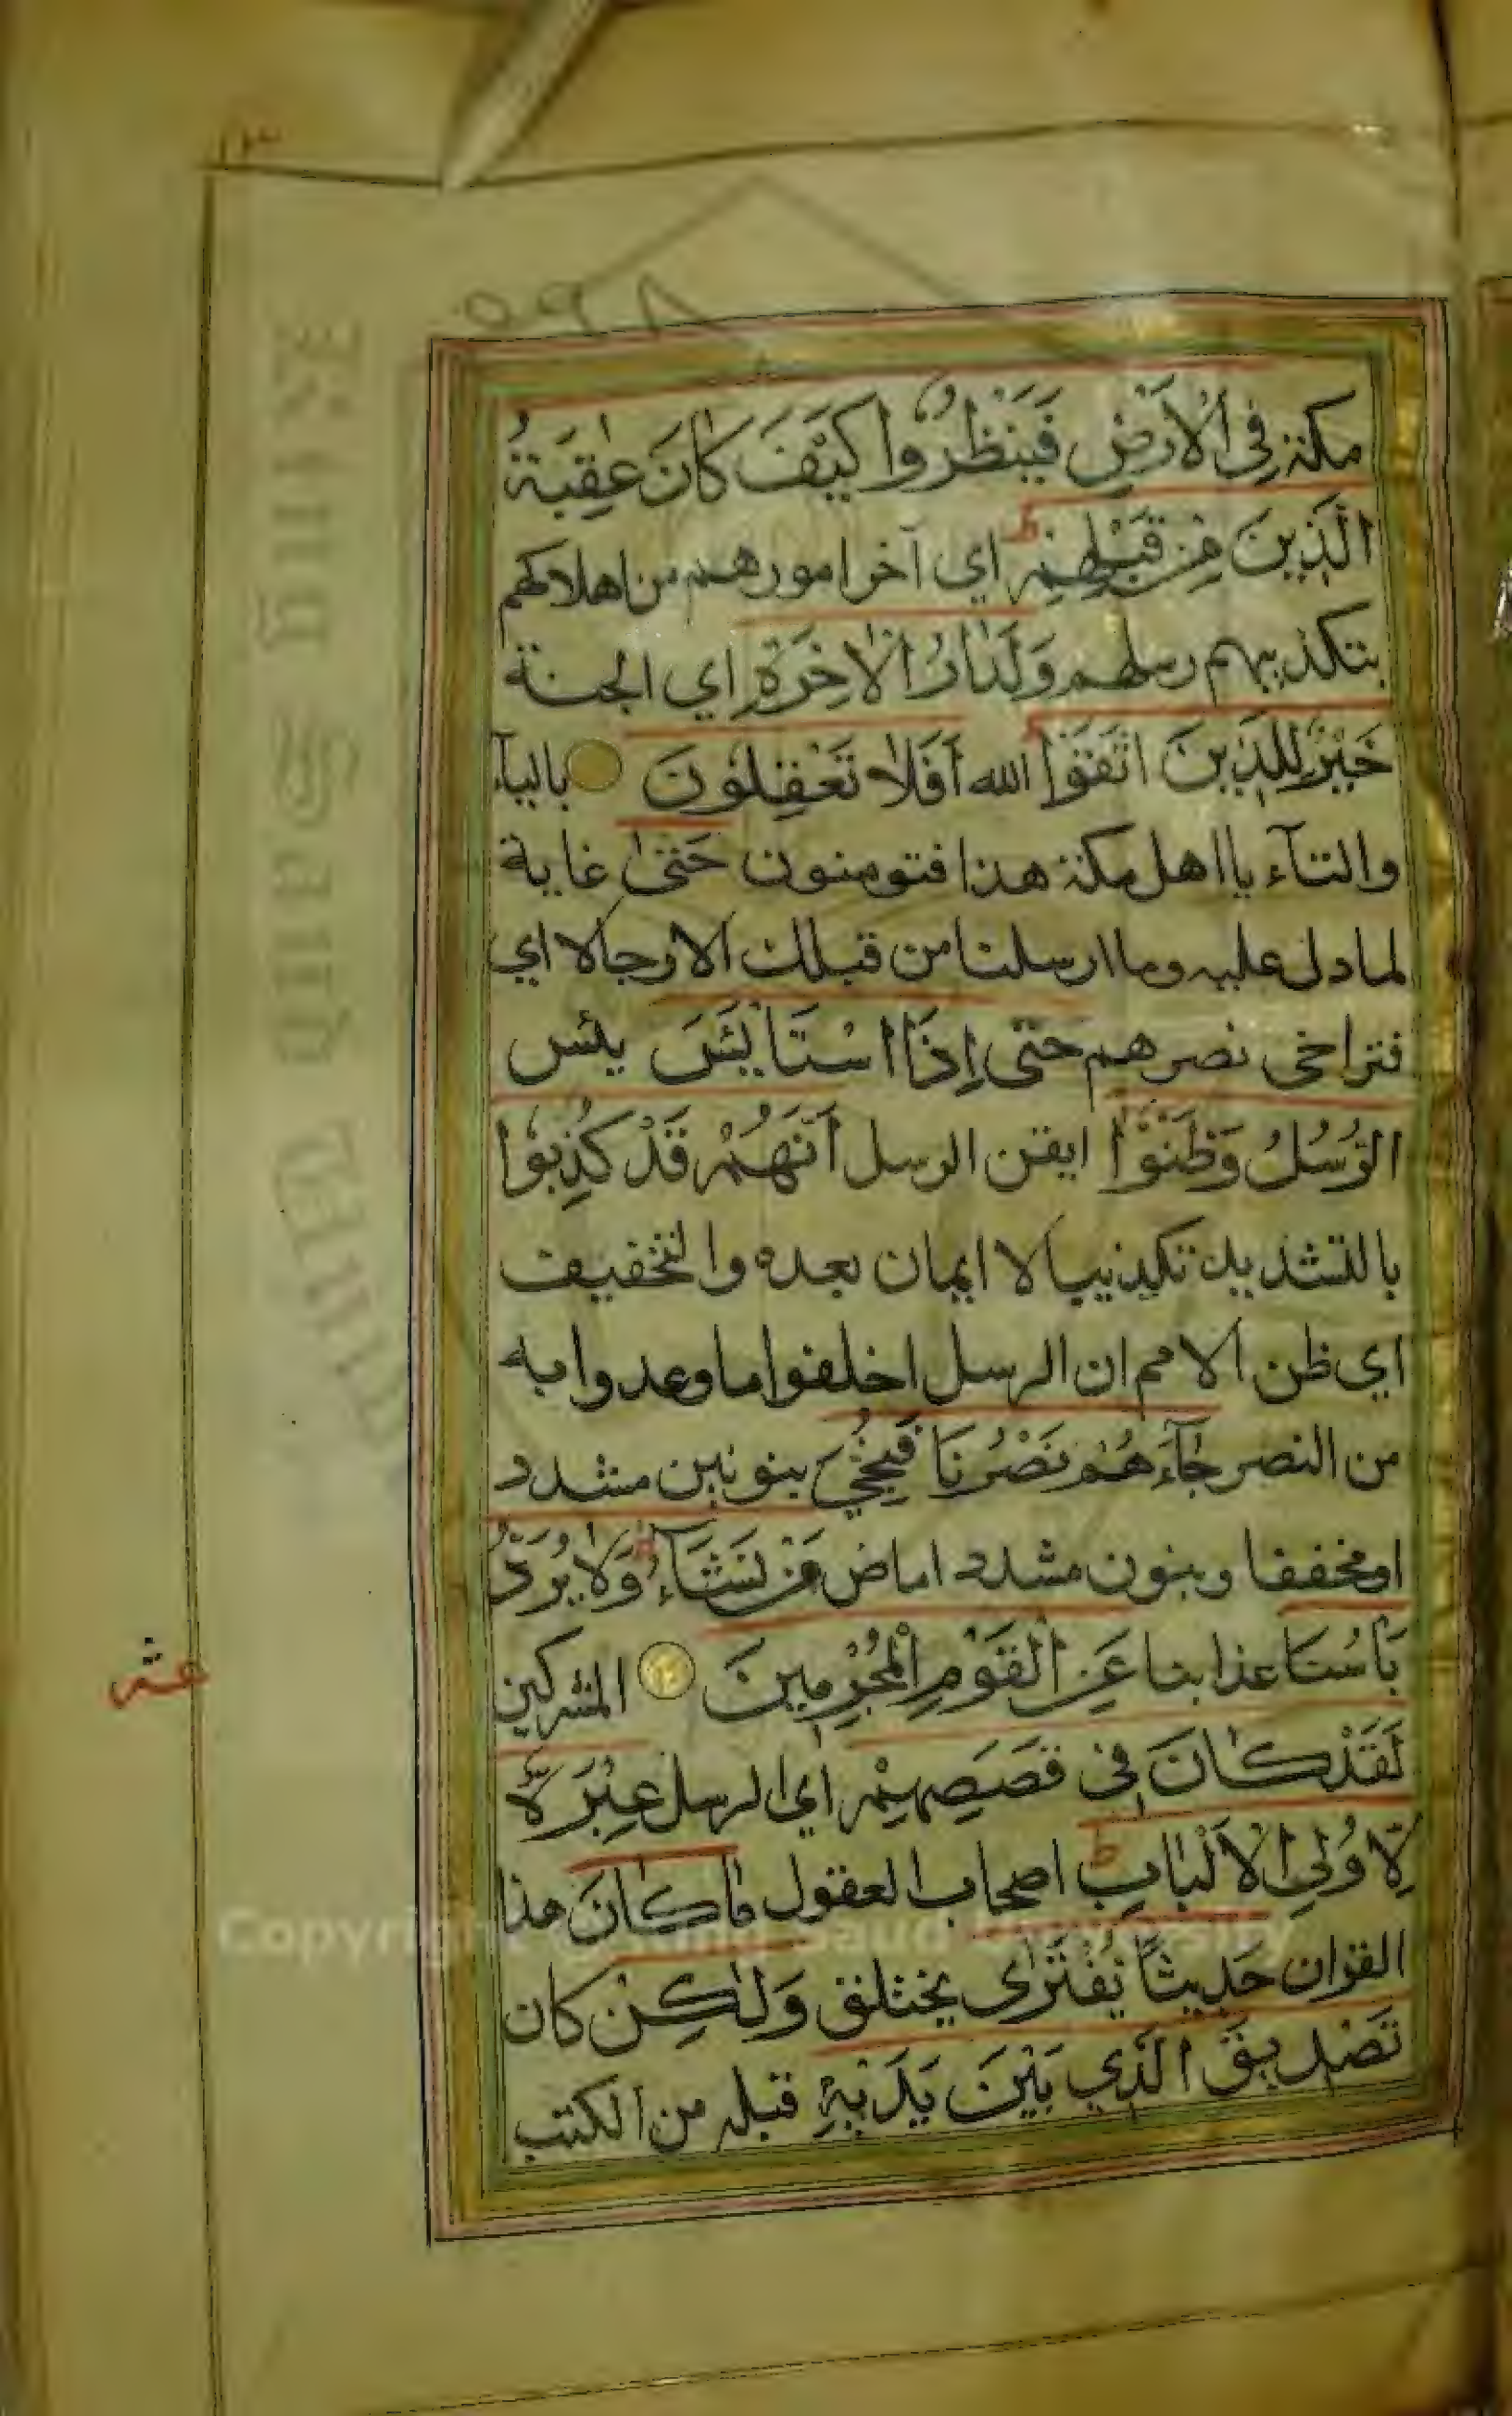 ٥٩٨
مكة فِي الْاَرْضِ فَيَنْظُرُوا كَيْفَ كَانَ عٰقِبَةُ
الَّذِينَ مِنْ قَبْلِهِمْ ط اي آخر امورهم من اهلاكهم
بتكذيبهم رسلهم وَلَدَارُ الْاٰخِرَةِ اي الجنة
خَيْرٌ لِلَّذِينَ اتَّقَوْا الله اَفَلَا تَعْقِلُونَ باليآء
والتآء يا اهل مكة هذا فتومنون حَتّٰى غاية
لما دل عليه وما ارسلنا من قبلك الا رجالا اي
فتراخى نصرهم حَتّٰى اِذَا اسْتَايْئَسَ يئس
الرُّسُلُ وَظَنُّوْا ايقن الرسل اَنَّهُمْ قَدْ كُذِبُوا
باللتشديد تكذيبا لا ايمان بعده والتخفيف
اي ظن الامم ان الرسل اخلفوا ما وعدوا به
من النصر جَآءَهُمْ نَصْرُنَا فَنُجِّيَ بنونين مشدد
او مخففا وبنون مشدد اماض مَنْ نَشَآءُ ط وَلَا يُرَدُّ
بَاْسُنَا عذابنا عَنِ الْقَوْمِ الْمُجْرِمِينَ المشركين
عشر
لَقَدْ كَانَ فِى قَصَصِهِمْ اي الرسل عِبْرَةٌ
لِاُولِي الْاَلْبَابِ ط اصحاب العقول مَا كَانَ هذا
القران حَدِيثًا يُفْتَرٰى يختلق وَلٰكِنْ كان
تَصْدِيقَ الَّذِي بَيْنَ يَدَيْهِ قبله من الكتب
King Saud University
Copyright © King Saud University